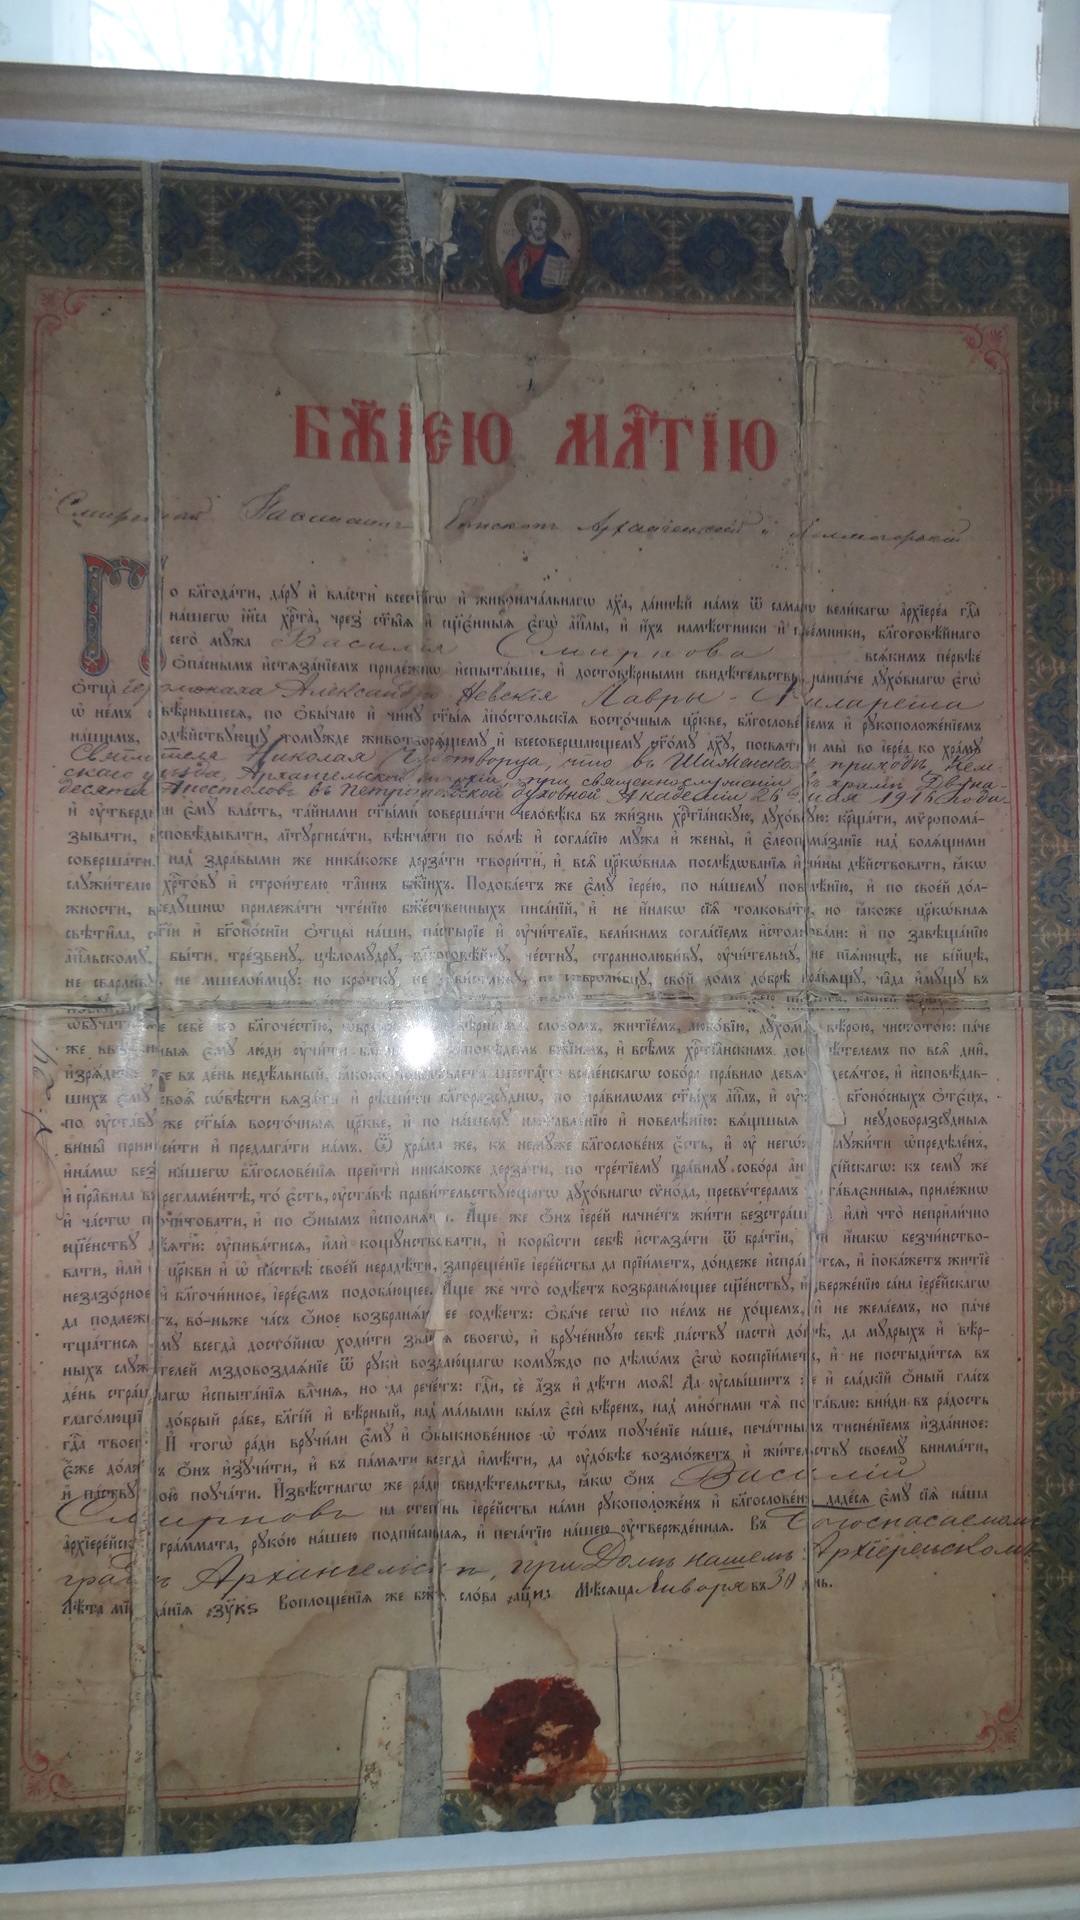 БЖ҃ІЕЮ МЛ҃ТІЮ
Епископъ Архангельскій и Холмогорскій
По бл҃года́ти, да́рꙋ и҆ вла́сти всест҃а́гѡ и҆ живонача́льнагѡ дх҃а, да́ннѣй на́мъ ѿ самагѡ вели́кагѡ а҆рхїере́а гдⷭ҇а
на́шегѡ і҆и҃са хрⷭ҇та̀, чрез̾ ст҃ы̑ѧ и҆ сщ҃є́нныѧ є҆гѡ̀ а҆пⷭ҇лы, и҆ и҆́хъ намѣ́стники и҆ прее́мники, бл҃гоговѣ́йнаго
сего̀ мꙋ́жа Василія Смирнова всѧ́кимъ пе́рвѣе
ѻ҆па́снымъ и҆стѧза́нїемъ прилѣ́жнѡ и҆спыта́вше, и҆ достовѣ́рными свидѣ́тельствы, наипа́че дꙋхо́внагѡ є҆гѡ̀
ѻ҆тца̀ Іеромонаха Александро Невскія Лавры
ѡ҆ не́мъ ᲂу҆вѣ́рившесѧ, по ѻ҆бы́чаю и҆ чи́нꙋ ст҃ы́ѧ а҆по́стольскїѧ восто́чныѧ цр҃кве, бл҃гослове́нїемъ и҆ рꙋкоположе́нїемъ
на́шимъ, содѣ́йствꙋющꙋ томꙋ́жде животворѧ́щемꙋ и҆ всесоверша́ющемꙋ ст҃о́мꙋ дх҃ꙋ, посвѧти́хомъ мы̀ во і҆ере́а ко хра́мꙋ
Святителя Николая Чудотворца, что въ приходѣ, Кем-
скаго уѣзда, Архангельской епархіи, при священнослуженіи въ храмѣ Двѣна-
десяти Апостоловъ въ Петроградской духовной Академіи 26 1916 года
и҆ ᲂу҆тверди́хомъ є҆мꙋ̀ вла́сть, та́йнами ст҃ы́ми соверша́ти человѣ́ка въ жи́знь хрⷭ҇тїа́нскꙋю, дꙋхо́внꙋю: кр҃ща́ти, мѵропома́-
зывати, и҆сповѣ́дывати, лїтꙋргиса́ти, вѣнча́ти по во́лѣ и҆ согла́сїю мꙋ́жа и҆ жены̀, и҆ є҆леопома́занїе над̾ болѧ́щими
соверша́ти: над̾ здра́выми же ника́коже дерза́ти твори́ти, и҆ всѧ̑ цр҃кѡ́внаѧ послѣ́дѡванїѧ и҆ чи́ны дѣ́йствовати, ꙗ҆́кѡ
слꙋжи́телю хрⷭ҇то́вꙋ и҆ строи́телю та̑инъ бж҃їихъ. Подоба́етъ же є҆мꙋ̀ і҆ере́ю, по на́шемꙋ повелѣ́нїю, и҆ по свое́й до́л-
жности, вседꙋ́шнѡ прилѣжа́ти чте́нїю бж҃е́ственныхъ писа́нїй, и҆ не и҆на́кѡ сїѧ̑ толкова́ти, но ꙗ҆́коже цр҃кѡ́внаѧ
свѣти̑ла, ст҃і́и и҆ бг҃оно́снїи ѻ҆тцы̀ на́ши, па́стырїе и҆ ᲂу҆чи́телїе, вели́кимъ согла́сїемъ и҆столкова́ли: и҆ по завѣща́нїю
а҆пⷭ҇льскомꙋ, бы́ти тре́звенꙋ, цѣломꙋ́дрꙋ, бл҃гоговѣ́йнꙋ, че́стнꙋ, страннолюби́вꙋ, ᲂу҆чи́тельнꙋ, не пїѧ́ницѣ, не бі́йцѣ,
не сварли́вꙋ, не мшелои́мцꙋ: но кро́ткꙋ, не зави́стливꙋ, не сребролю́бцꙋ, сво́й до́мъ до́брѣ пра́вѧщꙋ, ча̑да и҆мꙋ́щꙋ въ
же ввѣ́реныѧ є҆мꙋ̀ лю́ди ᲂу҆чи́ти бж҃їимъ, и҆ всѣ̑мъ хрⷭ҇тїа́нскимъ добродѣ́телемъ по всѧ̑ дни̑,
и҆зрѧ́днѣе же въ де́нь недѣ́льный, ꙗ҆́коже шеста́гѡ вселе́нскагѡ собо́ра пра́вило девѧтьдесѧ́тое, и҆ и҆сповѣ́дав-
шихъ є҆мꙋ̀ своѧ̑ со́вѣсти вѧза́ти и҆ рѣши́ти бл҃горазсꙋ́днѡ, по пра́вилѡмъ ст҃ы́хъ а҆пⷭ҇лъ, и҆ бг҃оно́сныхъ ѻ҆тє́цъ,
по ᲂу҆ста́вꙋ же ст҃ы́ѧ восто́чныѧ цр҃кве, и҆ по на́шемꙋ наставле́нїю и҆ повелѣ́нїю: вѧ́щшыѧ неꙋдоборазсꙋ̑дныѧ
вины̑ приноси́ти и҆ предлага́ти на́мъ. Ѿ хра́ма же, къ немꙋ́же бл҃гослове́нъ є҆́сть, и҆ ᲂу҆ негѡ̀ слꙋжи́ти ѡ҆предѣле́нъ,
и҆на́мѡ без̾ на́шегѡ бл҃гослове́нїѧ прейтѝ ника́коже дерза́ти, по тре́тїемꙋ пра́вилꙋ собо́ра а҆нтїохі́йскагѡ: къ семꙋ́ же
и҆ пра̑вила въ регла́ментѣ, то̀ є҆́сть, ᲂу҆ста́вѣ прави́тельствꙋющагѡ дꙋхо́внагѡ сѵно́да, пресвѵ́терамъ поста́влєнныѧ, прилѣ́жнѡ
и҆ ча́стѡ прочи́товати, и҆ по ѻ҆́нымъ и҆сполнѧ́ти. А҆́ще же ѻ҆́нъ і҆ере́й начне́тъ жи́ти безстра́шнѡ, и҆лѝ что̀ неприли́чно
сщ҃е́нствꙋ дѣ́ѧти: ᲂу҆пива́тисѧ, и҆лѝ кощꙋ́нствовати, и҆ коры̑сти себѣ̀ и҆стѧза́ти ѿ бра́тїи, и҆лѝ и҆на́кѡ безчи́нство-
вати, и҆лѝ ѡ҆ цр҃кви и҆ ѡ҆ па́ствѣ свое́й нерадѣ́ти, запреще́нїе і҆ере́йства да прїи́метъ, до́ндеже и҆спра́витсѧ, и҆ пока́жетъ житїѐ
незазо́рное и҆ бл҃гочи́нное, і҆ере́ємъ подоба́ющее. А҆́ще же что̀ содѣ́етъ возбранѧ́ющее сщ҃е́нствꙋ, и҆зверже́нїю са́на і҆ере́йскагѡ
да подлежи́тъ, во́-ньже ча́съ ѻ҆́ное возбранѧ́ющее содѣ́етъ: ѻ҆ба́че сегѡ̀ по не́мъ не хо́щемъ, и҆ не жела́емъ, но па́че
тща́тисѧ є҆мꙋ̀ всегда̀ досто́йнѡ ходи́ти зва́нїѧ своегѡ̀, и҆ врꙋче́ннꙋю себѣ̀ па́ствꙋ пастѝ до́брѣ, да мꙋ́дрыхъ и҆ вѣ́р-
ныхъ слꙋжи́телей мздовоздаѧ́нїе ѿ рꙋкѝ воздаю́щагѡ комꙋ́ждо по дѣлѡ́мъ є҆гѡ̀ воспрїи́метъ, и҆ не постыди́тсѧ въ
де́нь стра́шнагѡ и҆спыта́нїѧ влⷣчнѧ, но да рече́тъ: гдⷭ҇и, сѐ а҆́зъ и҆ дѣ́ти моѧ̑! Да ᲂу҆слы́шитъ же и҆ сла́дкїй ѻ҆́ный гла́съ
глаго́лющїй: до́брый ра́бе, бл҃гі́й и҆ вѣ́рный, над̾ ма́лыми бы́лъ є҆сѝ вѣ́ренъ, над̾ мно́гими тѧ̀ поста́влю: вни́ди въ ра́дость
гдⷭ҇а твоегѡ̀. И҆ тогѡ̀ ра́ди врꙋчи́ли є҆мꙋ̀ и҆ ѻ҆быкнове́нное ѡ҆ то́мъ поꙋче́нїе на́ше, печа́тнымъ тисне́нїемъ и҆зда́нное:
є҆́же до́лженъ ѻ҆́нъ и҆зꙋчи́ти, и҆ въ па́мѧти всегда̀ и҆мѣ́ти, да ᲂу҆до́бѣе возмо́жетъ и҆ жи́тельствꙋ своемꙋ̀ внима́ти,
и҆ па́ствꙋ свою̀ поꙋча́ти. И҆звѣ́стнагѡ же ра́ди свидѣ́тельства, ꙗ҆́кѡ ѻ҆́нъ Василій
Смирновъ на сте́пень і҆ере́йства на́ми рꙋкоположе́нъ и҆ бл҃гослове́нъ, даде́сѧ є҆мꙋ̀ сїѧ̀ на́ша
а҆рхїере́йскаѧ гра́ммата, рꙋко́ю на́шею подпи́саннаѧ, и҆ печа́тїю на́шею ᲂу҆твержде́ннаѧ. Въ Богоспасаемомъ
градѣ Архангельскѣ, при Домѣ нашемъ Архіерейскомъ
Лѣ́та мїрозда́нїѧ ҂зѵ҃кѕ Воплоще́нїѧ же бж҃їѧ сло́ва Мѣ́сѧца Января въ 30 де́нь.